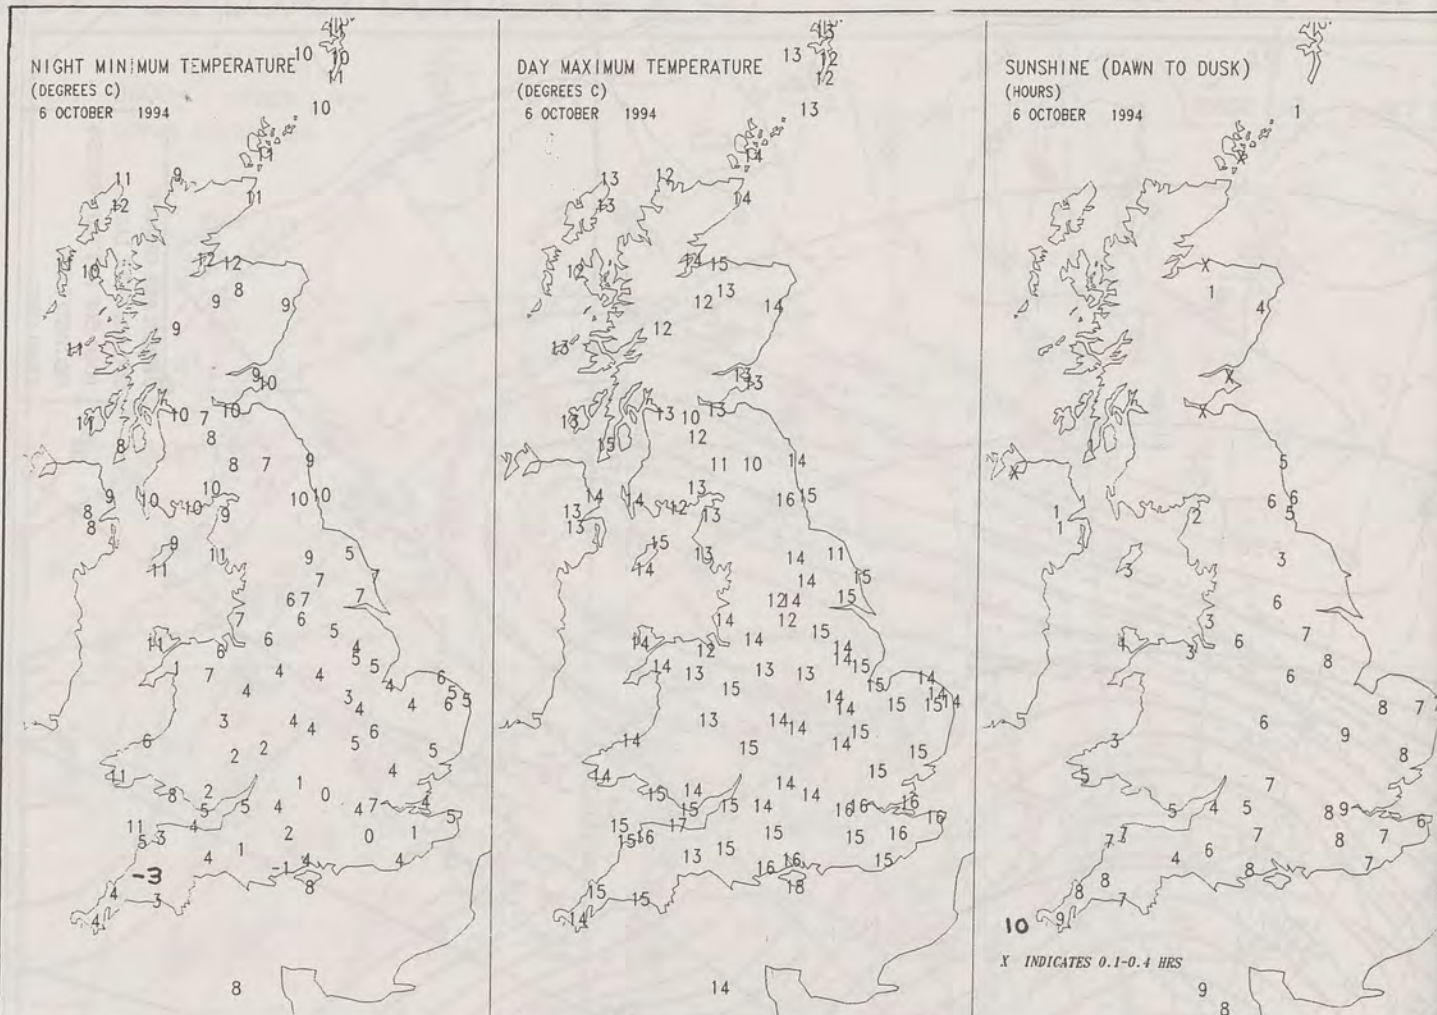 NIGHT MINIMUM TEMPERATURE
(DEGREES C)
6 OCTOBER 1994
10 10
11
10
11 9
12 11
12 12
10
8
9 9
9
9
10
11 10 7 10
8 8
8 7 9
9 10 10 10 10
8 9
8
9 11 9 5
11
7
6 7 7
7 6
11 6 6 5 4
5
1 7 4 4 5 6
4 3 4 4 5 5
6
3 4 4 6
6 2 2 5 5
11 4
8 2 1 0
5 5 4 4 7 4
5
11 4 2 0 1
5 3
4 1 -1 4 4
-3 8
4 3
4
8
DAY MAXIMUM TEMPERATURE
(DEGREES C)
6 OCTOBER 1994
13 12
12
13
14
13 12
13 14
12 14 15
13
12 14
12
13
13 13
13 13 10 13
15 12
11 10 14
14 14 13 16 15
13 12 13
13
15 13 14 11
14 14 15
12 14 15
14 12
14 14 15 14
12 14
14 13 13 13 15 14
15 14 15 15 14
14 15 15 14
13 14 14 15
14 15 14 15
14 15
15 14 14 14
15 15 14 16 16 16
15
15 17 15 15 16
15 16
13 15 16 16 15
15 15
14
14
SUNSHINE (DAWN TO DUSK)
(HOURS)
6 OCTOBER 1994
1
X
X
1
4
X
X
X 5
6 6
1 2 5
1
3 3
6
3 7
4 3 6 8
6
8 7
6 9
3 8
5 7
5 4 5 8 9
6
7 7 7 8 7
4 6 8 7
8 8 7
10 9
X INDICATES 0.1-0.4 HRS
9
8